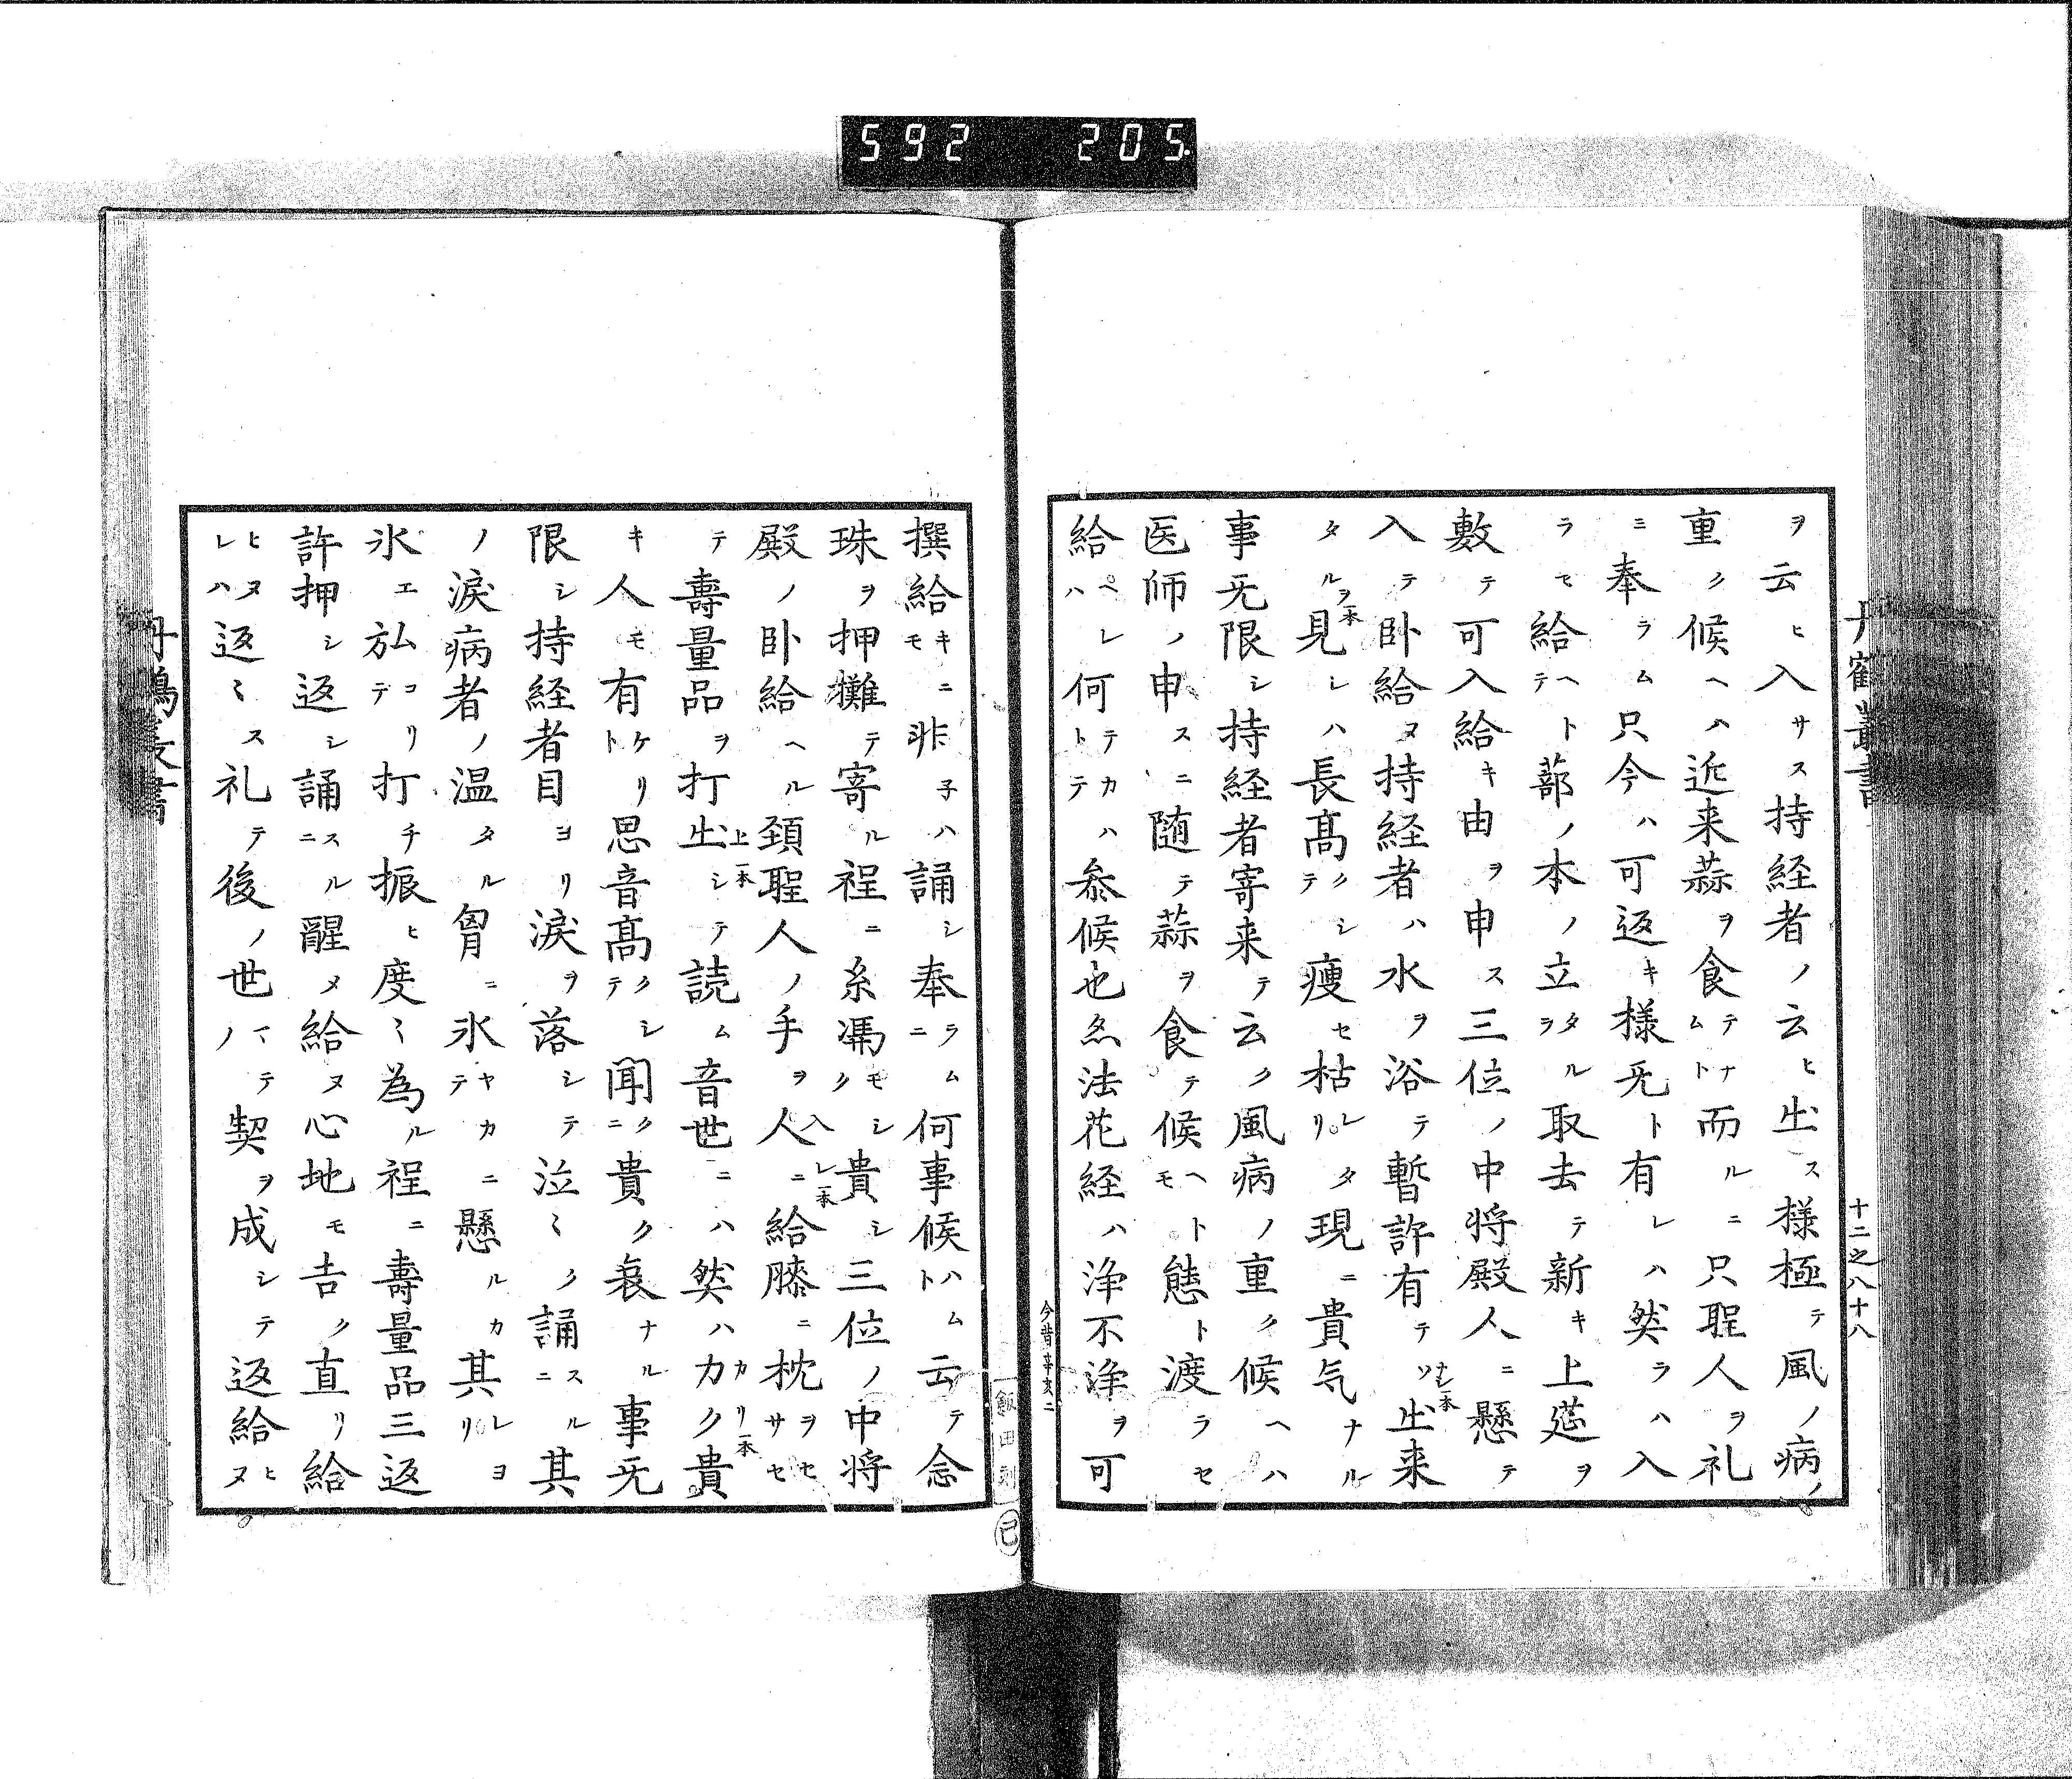 592 205
丹鶴叢書
十二之八十八
ヲ云ヒ入サス持経者ノ云ヒ出ス様極テ風ノ病ノ
重ク候ヘハ近来蒜ヲ食テナムト而ルニ只聖人ヲ礼
ミ奉ラム只今ハ可返キ様无ト有レハ然ラハ入
ラセ給ヘトテ蔀ノ本ノ立タルヲ取去テ新キ上莚ヲ
敷テ可入給キ由ヲ申ス三位ノ中将殿人ニ懸テ
入テ卧給ヌ持経者ハ水ヲ浴テ暫許有テソナシ一本出来
タルヲ一本見レハ長髙クシテ痩セ枯レタリ現ニ貴気ナル
事无限シ持経者寄来テ云ク風病ノ重ク候ヘハ
医師ノ申スニ随テ蒜ヲ食テ候ヘトモ態ト渡ラセ
給ヘレハ何テカハトテ参候也亦法花経ハ浄不浄ヲ可
今昔辛亥二
撰給キニモ非子ハ誦シ奉ラムニ何事候ハムト云テ念
珠ヲ押攤テ寄ル程ニ糸馮モシク貴シ三位ノ中将
殿ノ卧給ヘル頚聖人ノ手ヲ入ニレ一本給膝ニ枕ヲセサセ
テ壽量品ヲ打出上一本シテ読ム音世ニハ然ハカクカリ一本貴
キ人モ有ケリト思音髙クシテ聞クニ貴ク哀ナル事无
限シ持経者目ヨリ涙ヲ落シテ泣〻ク誦スルニ其
ノ涙病者ノ温タル胷ニ氷ヤカニテ懸ルカ其レヨリ
氷エ弘コリテ打チ振ヒ度〻為ル程ニ壽量品三返
許押シ返シ誦スルニ醒メ給ヌ心地モ吉ク直リ給
ヒヌレハ返〻ス礼テ後ノ世マテノ契ヲ成シテ返給ヒヌ
飯田刻